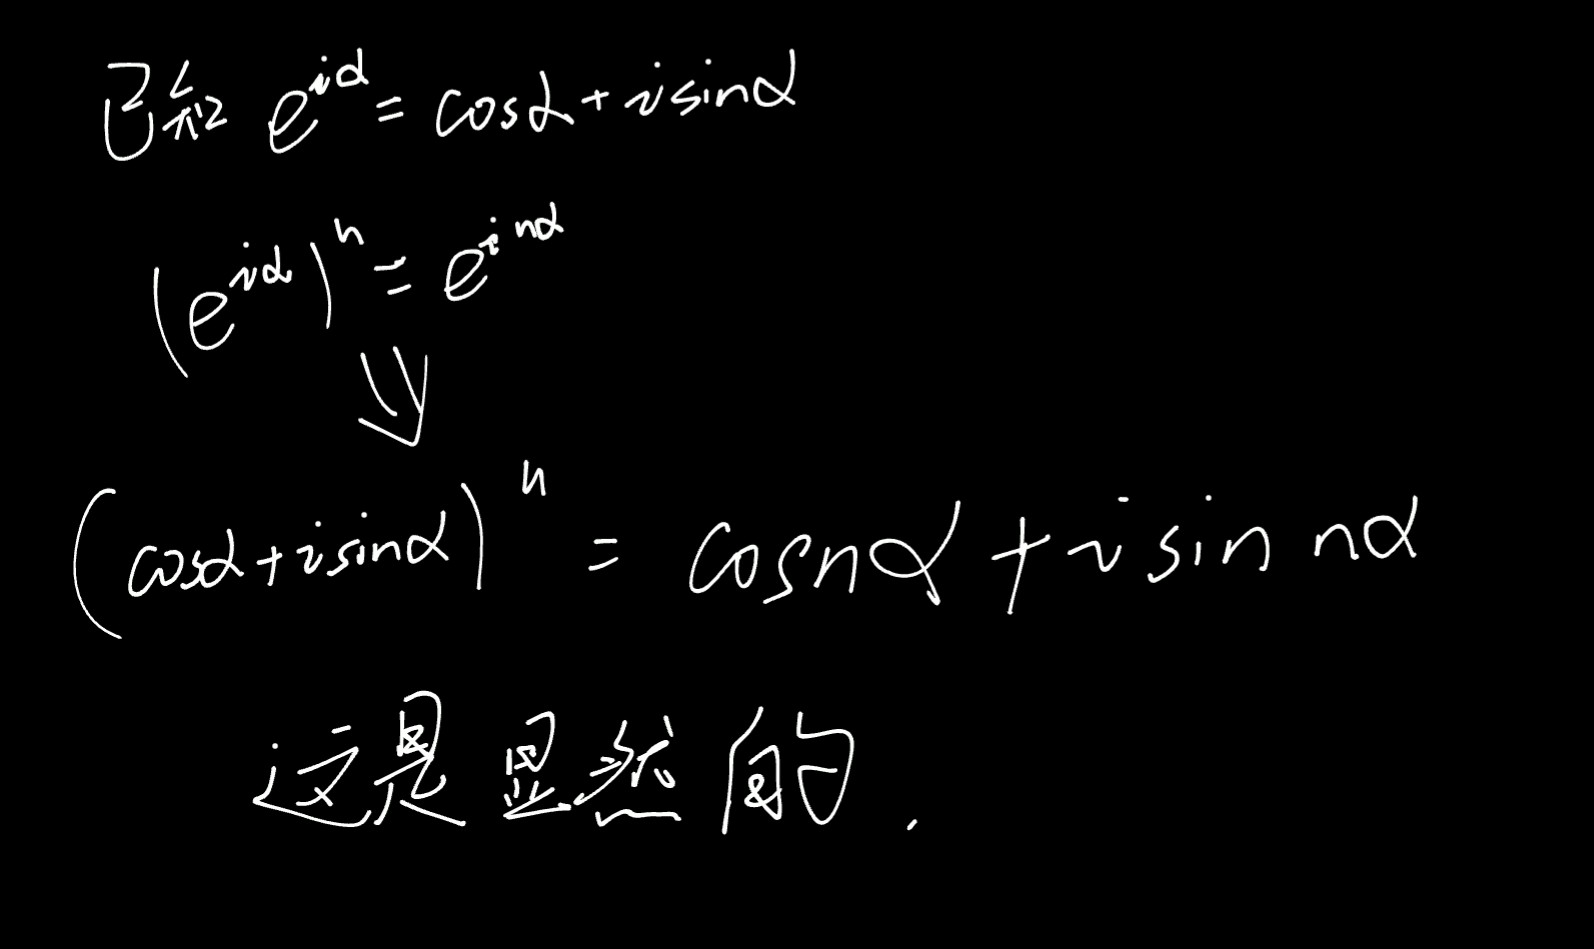 已知 e^{iα} = cosα + i sinα
(e^{iα})^n = e^{i nα}
⇓
(cosα + i sinα)^n = cos nα + i sin nα
这是显然的.